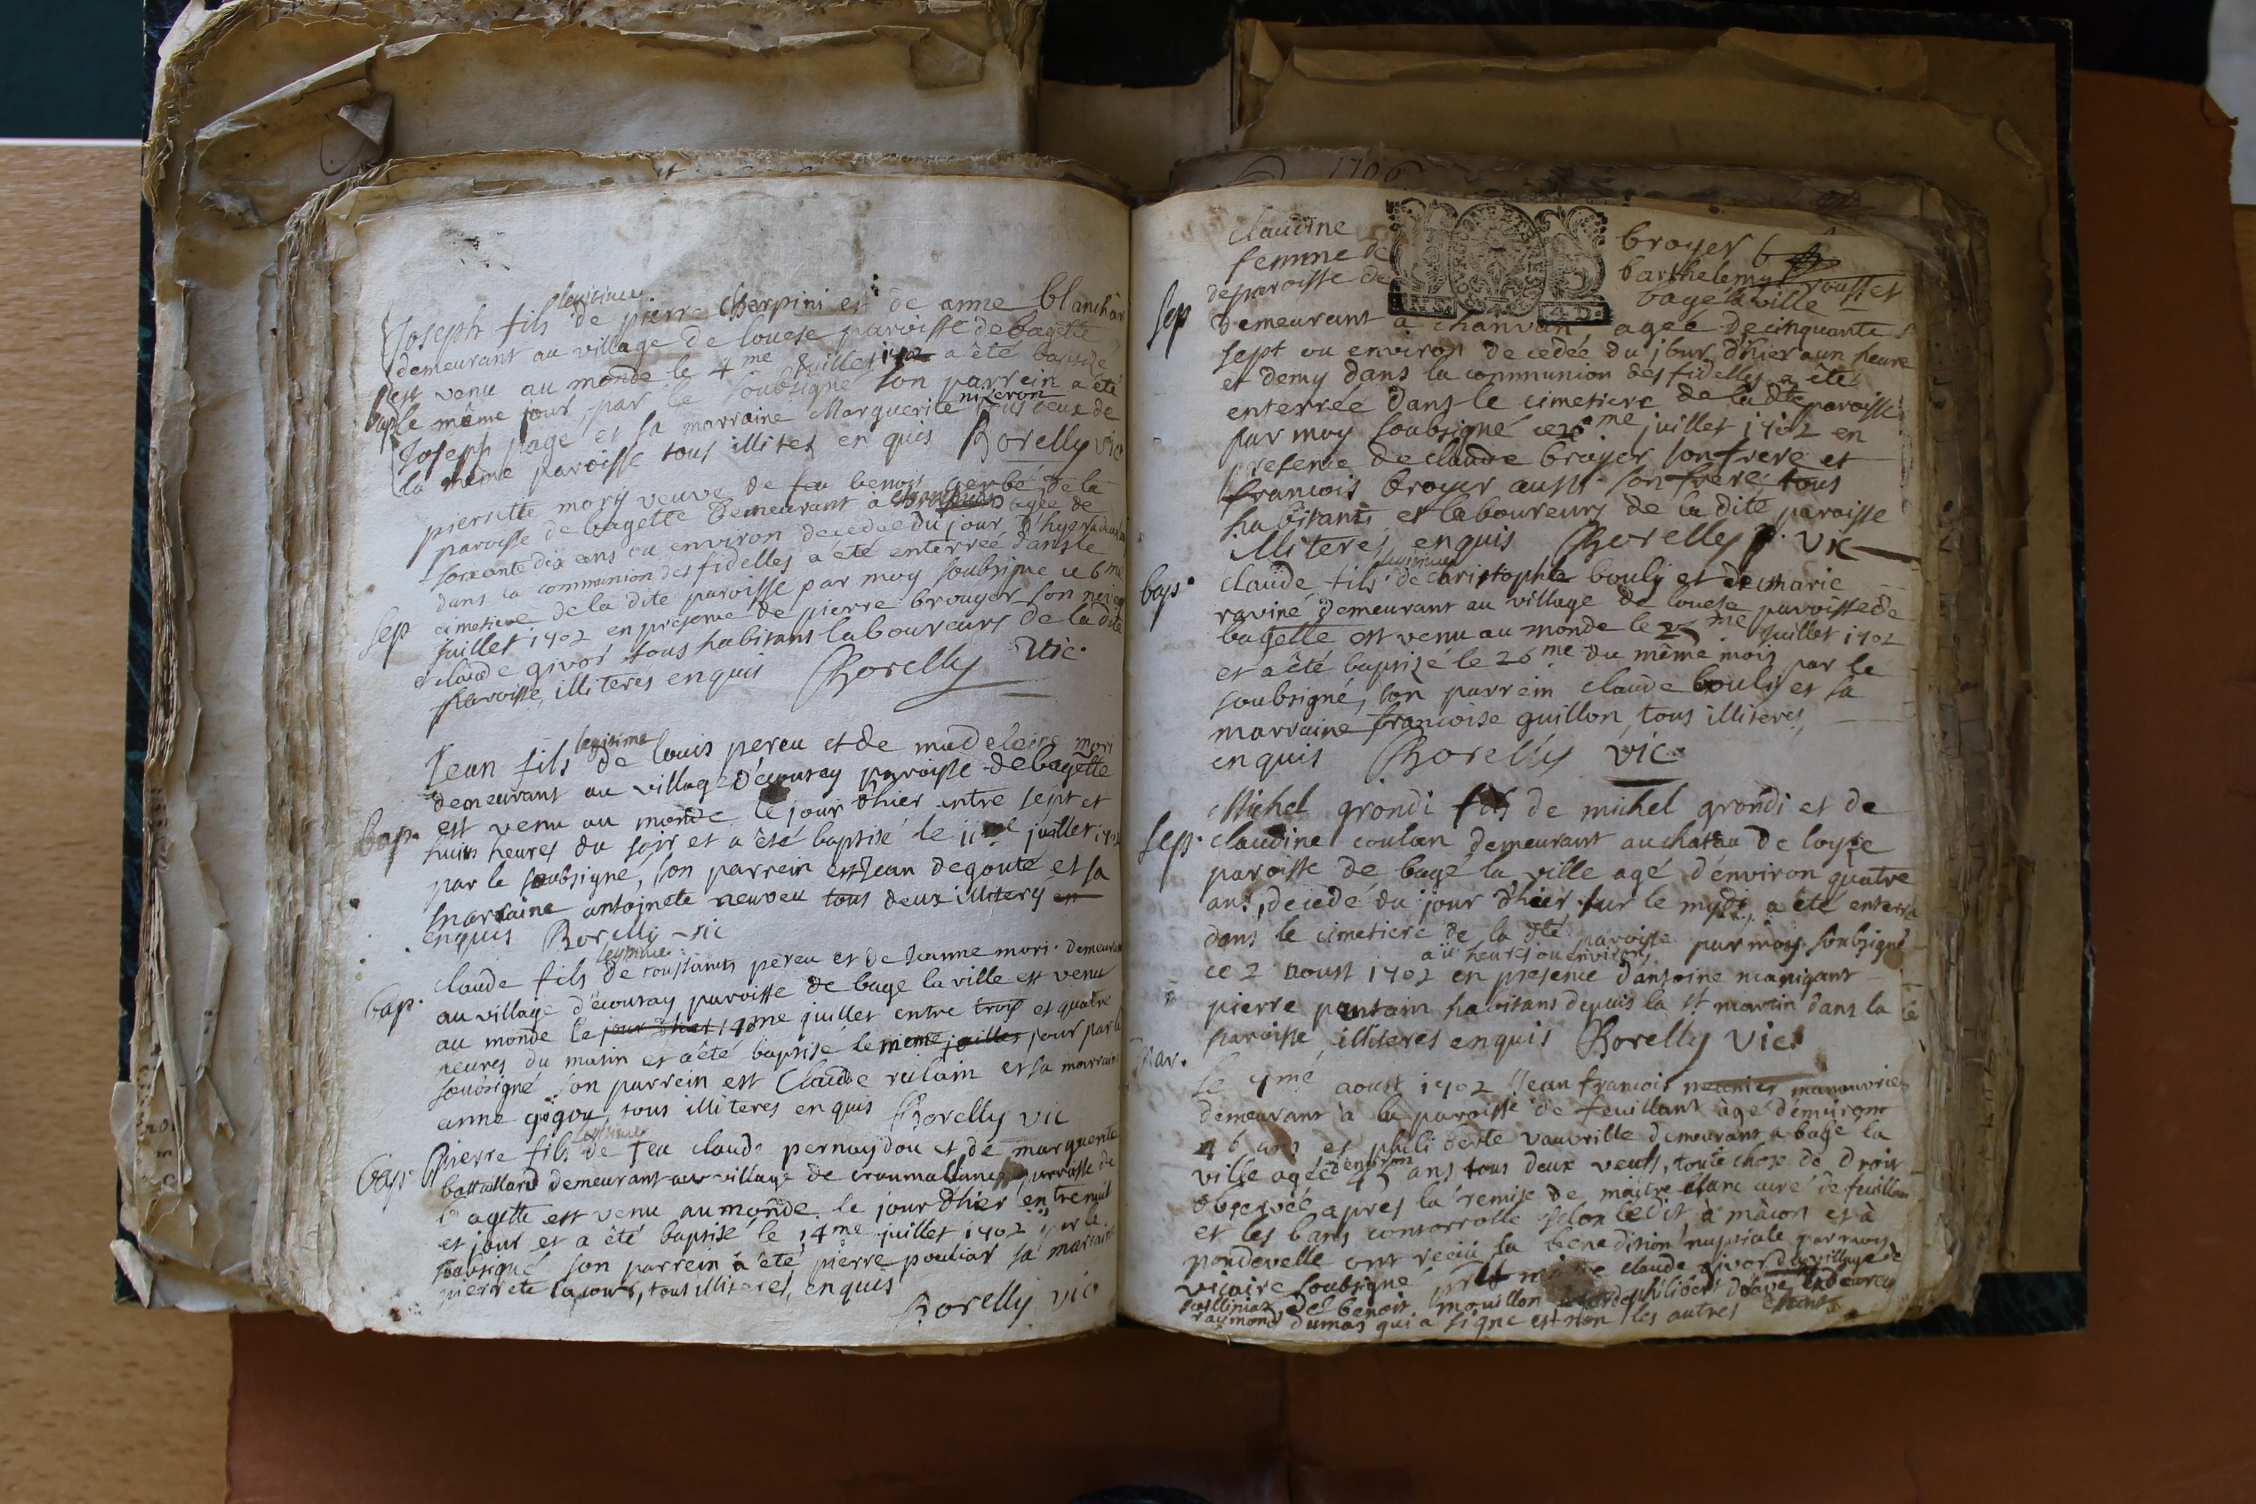 Joseph fils legitime de pierre Charpini et de anne blanchar
demeurant au village de louese paroisse de bagette
est venu au monde le 4me Juillet 1702 a été baptizé
bap le même jour, par le soubsigné son parrein a été
Joseph page et sa marraine Marguerite nizeron tous deux de
la même paroisse tous illites enquis Borelly vic
pierrette mory veuve de feu benois gerbé de la
paroisse de bagette demeurant à agée de
soixante dix ans ou environ decedée du jour d'hyer
dans la communion des fidelles a été enterrée dans le
cimetiere de la dite paroisse par moy soubsigné ce 6me
sep Juillet 1702 en presence de pierre brouyer son neveu
claude givor tous habitans laboureurs de la dite
paroisse, illiterés enquis Borelly Vic.
Jean fils legitime de louis pereu et de madeleine mori
demeurant au village d'écouray paroisse de bagette
est venu au monde le jour d'hier entre sept et
bap. huits heures du soir et a été baptisé le 11me juillet 1702
par le soubsigné, son parrein est Jean degouté et sa
marraine antoinete neuveu tous deux illiterés en
enquis Borelly vic
claude fils legitime de toussaints pereu et de Jeanne mori demeurant
bap. au village d'écouray paroisse de bage la ville est venu
au monde le jour d'hier me juillet entre trois et quatre
heures du matin et a été baptisé le meme juillet jour par le
soubsigné son parrein est Claude rulam et sa marraine
anne gigou, tous illiteres enquis Borelly vic
bap. Pierre fils legitime de feu claude pernaydou et de marguerite
battaillard demeurant au village de paroisse de
bagette est venu au monde le jour d'hier entre nuit
et jour et a été baptisé le 14me juillet 1702 par le
soubsigné son parrein à été pierre pouliar sa marraine
pierrete lacour, tous illiteres, enquis
Borelly vic
1706
claudine broyer
femme de barthelemy rousset
de paroisse de bagé la ville
sep demeurant à chanvan agée de cinquante
sept ou environ decedée du jour d'hier a un heure
et demy dans la communion des fidelles a été
enterrée dans le cimetiere de la dte paroisse
par moy soubsigné ce me juillet 1702 en
presence de claude broyer son frere et
francois broyer aussi son frere tous
habitants et laboureurs de la dite paroisse
illiteres enquis Borelly p. vic
bap. claude fils legitime de christophle bouly et de marie
raviné demeurant au village de louese paroisse de
bagette est venu au monde le 25me Juillet 1702
et a été baptizé le 26me du même mois par le
soubsigné, son parrein claude bouly et sa
marraine francoise guillon, tous illiteres,
enquis Borelly vic.
Michel grondi fils de michel grondi et de
sep. claudine coulon demeurant au chatau de loyse
paroisse de bagé la ville agé d'environ quatre
ans, decedé du jour d'hier sur le mydi, a été enterré
dans le cimetiere de la dte paroisse par moy soubsigné
a 11 heures ou environ
ce 2 aoust 1702 en presence d'antoine manigant
pierre pantain habitans depuis la st martin dans la
paroisse illiteres enquis Borelly vic.
mar. le 7me aoust 1702 Jean francois meunier manouvrier
demeurant à la paroisse de feuillans àgé d'environt
46 ans et philiberte vauvrille demeurant a bagé la
ville agée d'environ 45 ans tous deux veufs, toute chose de droit
observée apres la remise de maitre blanc curé de feuillans
et les bans controrollé selon ledit à mâcon et à
pondevelle ont reçu la benediction nuptiale par moy
vicaire soubsigné claude givor du village de
benoit mouillon
raymond dumas qui a signé et non les autres